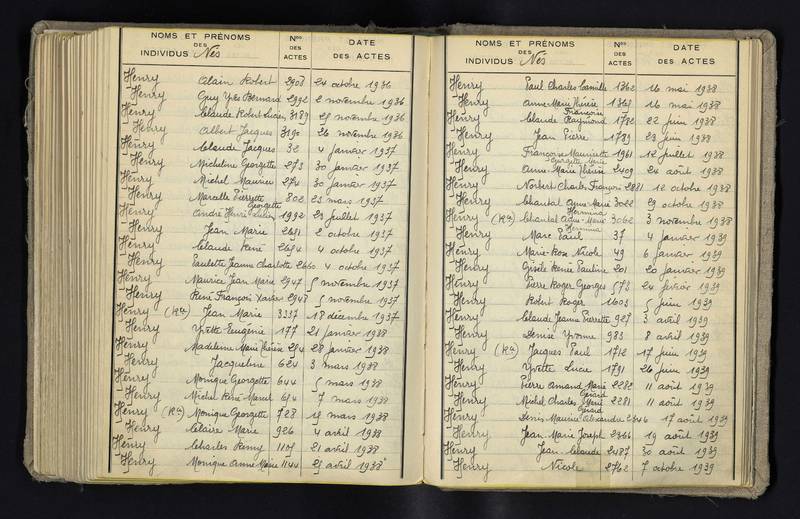 NOMS ET PRÉNOMS
DES
INDIVIDUS Nés
Nos
DES
ACTES
DATE
DES ACTES
Henry Alain Robert 2903 24 octobre 1936
Henry Guy Yves Bernard 2992 2 novembre 1936
Henry Claude Robert Lucien 3189 25 novembre 1936
Henry Albert Jacques 3190 26 novembre 1936
Henry Claude Jacques 32 4 janvier 1937
Henry Micheline Georgette 273 30 janvier 1937
Henry Michel Maurice 274 30 janvier 1937
Henry Marcelle Pierrette 802 23 mars 1937
Georgette
Henry André Henri Lucien 1992 23 juillet 1937
Henry Jean Marie 2651 2 octobre 1937
Henry Claude René 2654 4 octobre 1937
Henry Paulette Jeanne Charlotte 2660 4 octobre 1937
Henry Maurice Jean Marie 2947 5 novembre 1937
Henry René François Xavier 2948 5 novembre 1937
Henry (Ra) Jean Marie 3337 18 décembre 1937
Henry Yvette Eugénie 177 21 janvier 1938
Henry Madeleine Marie Thérèse 254 28 janvier 1938
Henry Jacqueline 624 3 mars 1938
Henry Monique Georgette 644 5 mars 1938
Henry Michel René Marcel 654 7 mars 1938
Henry (Ra) Monique Georgette 728 15 mars 1938
Henry Claire Marie 926 4 avril 1938
Henry Charles Remy 1105 21 avril 1938
Henry Monique Anne Marie 1144 25 avril 1938
NOMS ET PRÉNOMS
DES
INDIVIDUS Nés
Nos
DES
ACTES
DATE
DES ACTES
Henry Paul Charles Camille 1362 16 mai 1938
Henry Anne Marie Thérèse 1365 16 mai 1938
Françoise
Henry Claude Raymond 1782 22 juin 1938
Henry Jean Pierre 1789 23 juin 1938
Henry Françoise Mauricette 1961 12 juillet 1938
Georgette Marie
Henry Anne Marie Thérèse 2409 24 août 1938
Henry Norbert Charles François 2881 12 octobre 1938
Henry Chantal Anne Marie 3022 29 octobre 1938
Hermina
Henry (Ra) Chantal Anne Marie 3062 3 novembre 1938
Hermina
Henry Marc Paul 37 4 janvier 1939
Henry Marie-Rose Nicole 49 6 janvier 1939
Henry Gisèle Renée Pauline 201 20 janvier 1939
Henry Pierre Roger Georges 573 24 février 1939
Henry Robert Roger 1603 5 juin 1939
Henry Claude Jeanne Pierrette 927 3 avril 1939
Henry Denise Yvonne 983 8 avril 1939
Henry (Ra) Jacques Paul 1712 17 juin 1939
Henry Yvette Lucie 1791 26 juin 1939
Henry Pierre Amand Marie 2282 11 août 1939
Gérard
Henry Michel Charles Marie 2281 11 août 1939
Gérard
Henry Denis Maurice Alexandre 2346 17 août 1939
Henry Jean Marie Joseph 2366 19 août 1939
Henry Jean-Claude 2487 30 août 1939
Henry Nicole 2762 7 octobre 1939